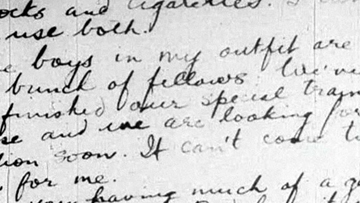 ocks and cigarettes. I
use both.
e boys in my outfit are
bunch of fellows. We've
finished our special train
se and we are looking for
ion soon. It can't come t
for me.
having much of a g